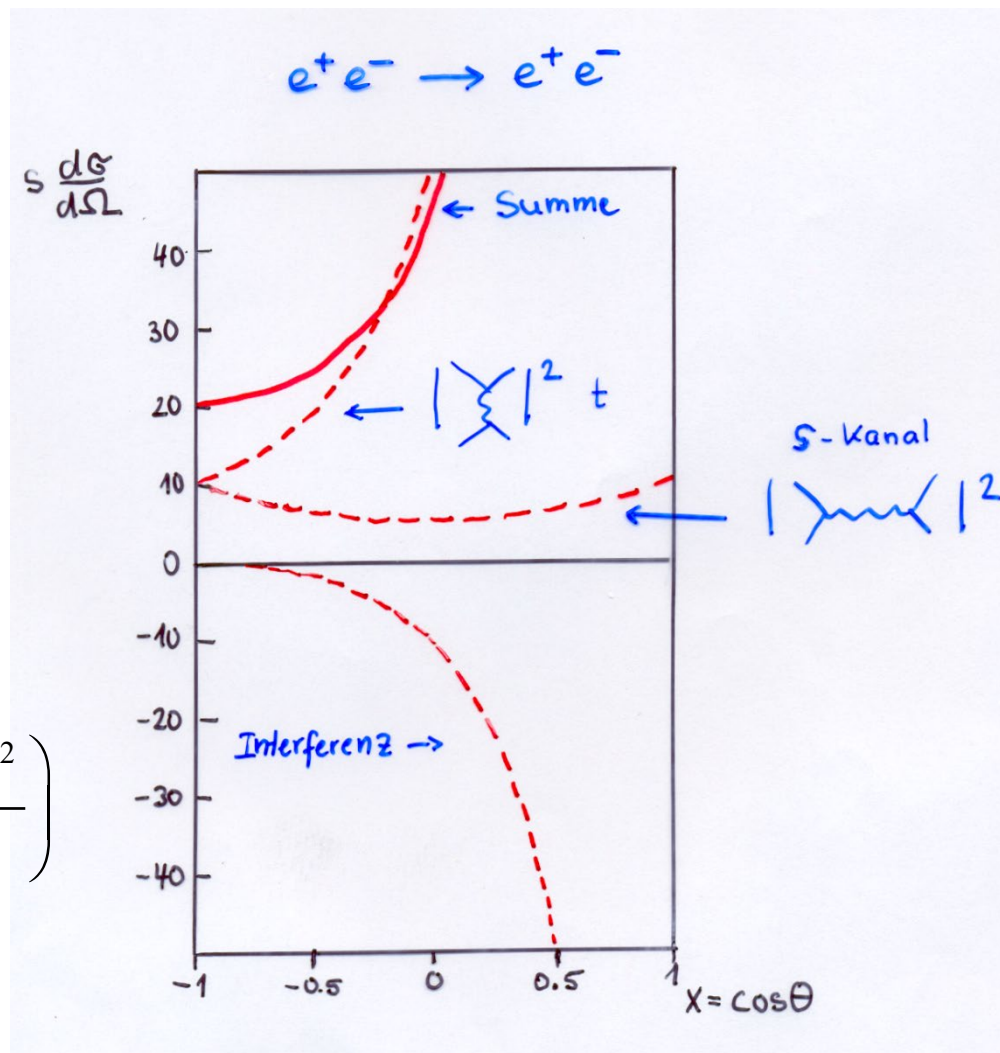 e⁺ e⁻ → e⁺ e⁻
s dσ/dΩ
← Summe
40
30
| |² t
20
S-Kanal
10
| |²
0
-10
-20
Interferenz →
2
)
-30
-40
-1 -0.5 0 0.5 1
x = cosθ